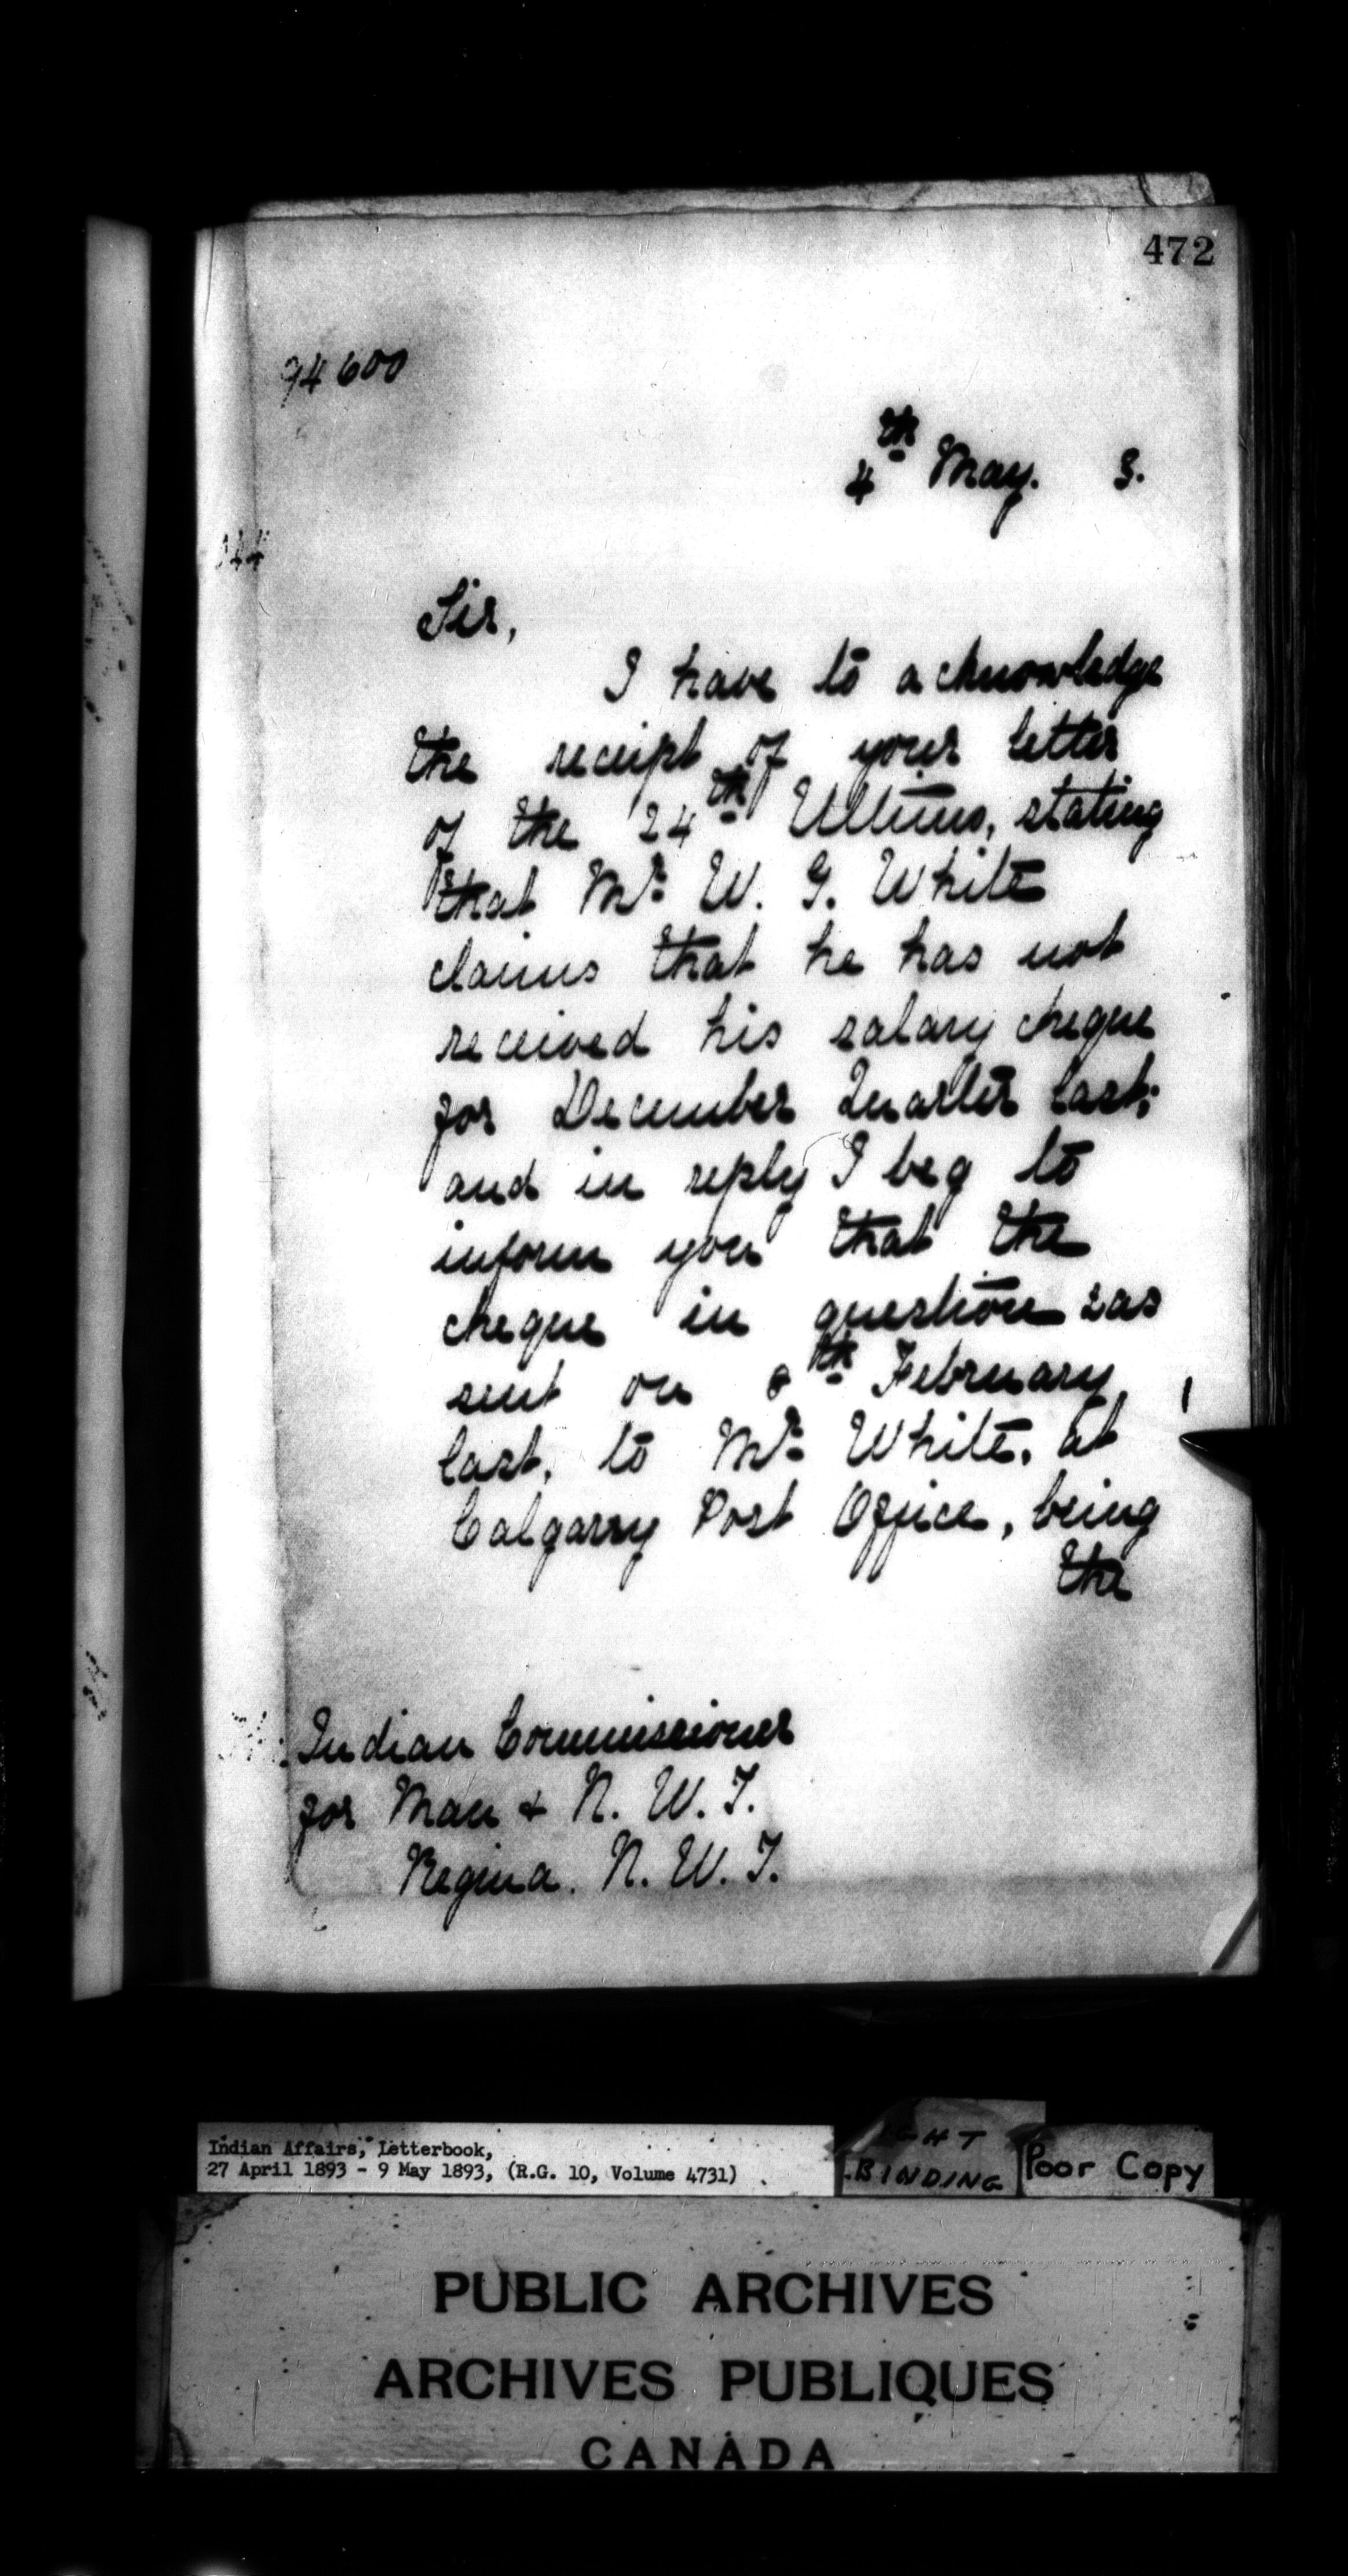 472
94600
4th May. 3.
Sir,
I have to acknowledge
the receipt of your letter
of the 24th Ultimo, stating
that Mr. W. G. White
claims that he has not
received his salary cheque
for December Quarter last;
and in reply I beg to
inform you that the
cheque in question was
sent on 8th February
last, to Mr. White, at
Calgarry Post Office, being
the
Indian Commissioner
for Man & N. W. T.
Regina. N. W. T.
Indian Affairs, Letterbook,
27 April 1893 - 9 May 1893, (R.G. 10, Volume 4731)
BINDING
Poor Copy
PUBLIC ARCHIVES
ARCHIVES PUBLIQUES
CANADA